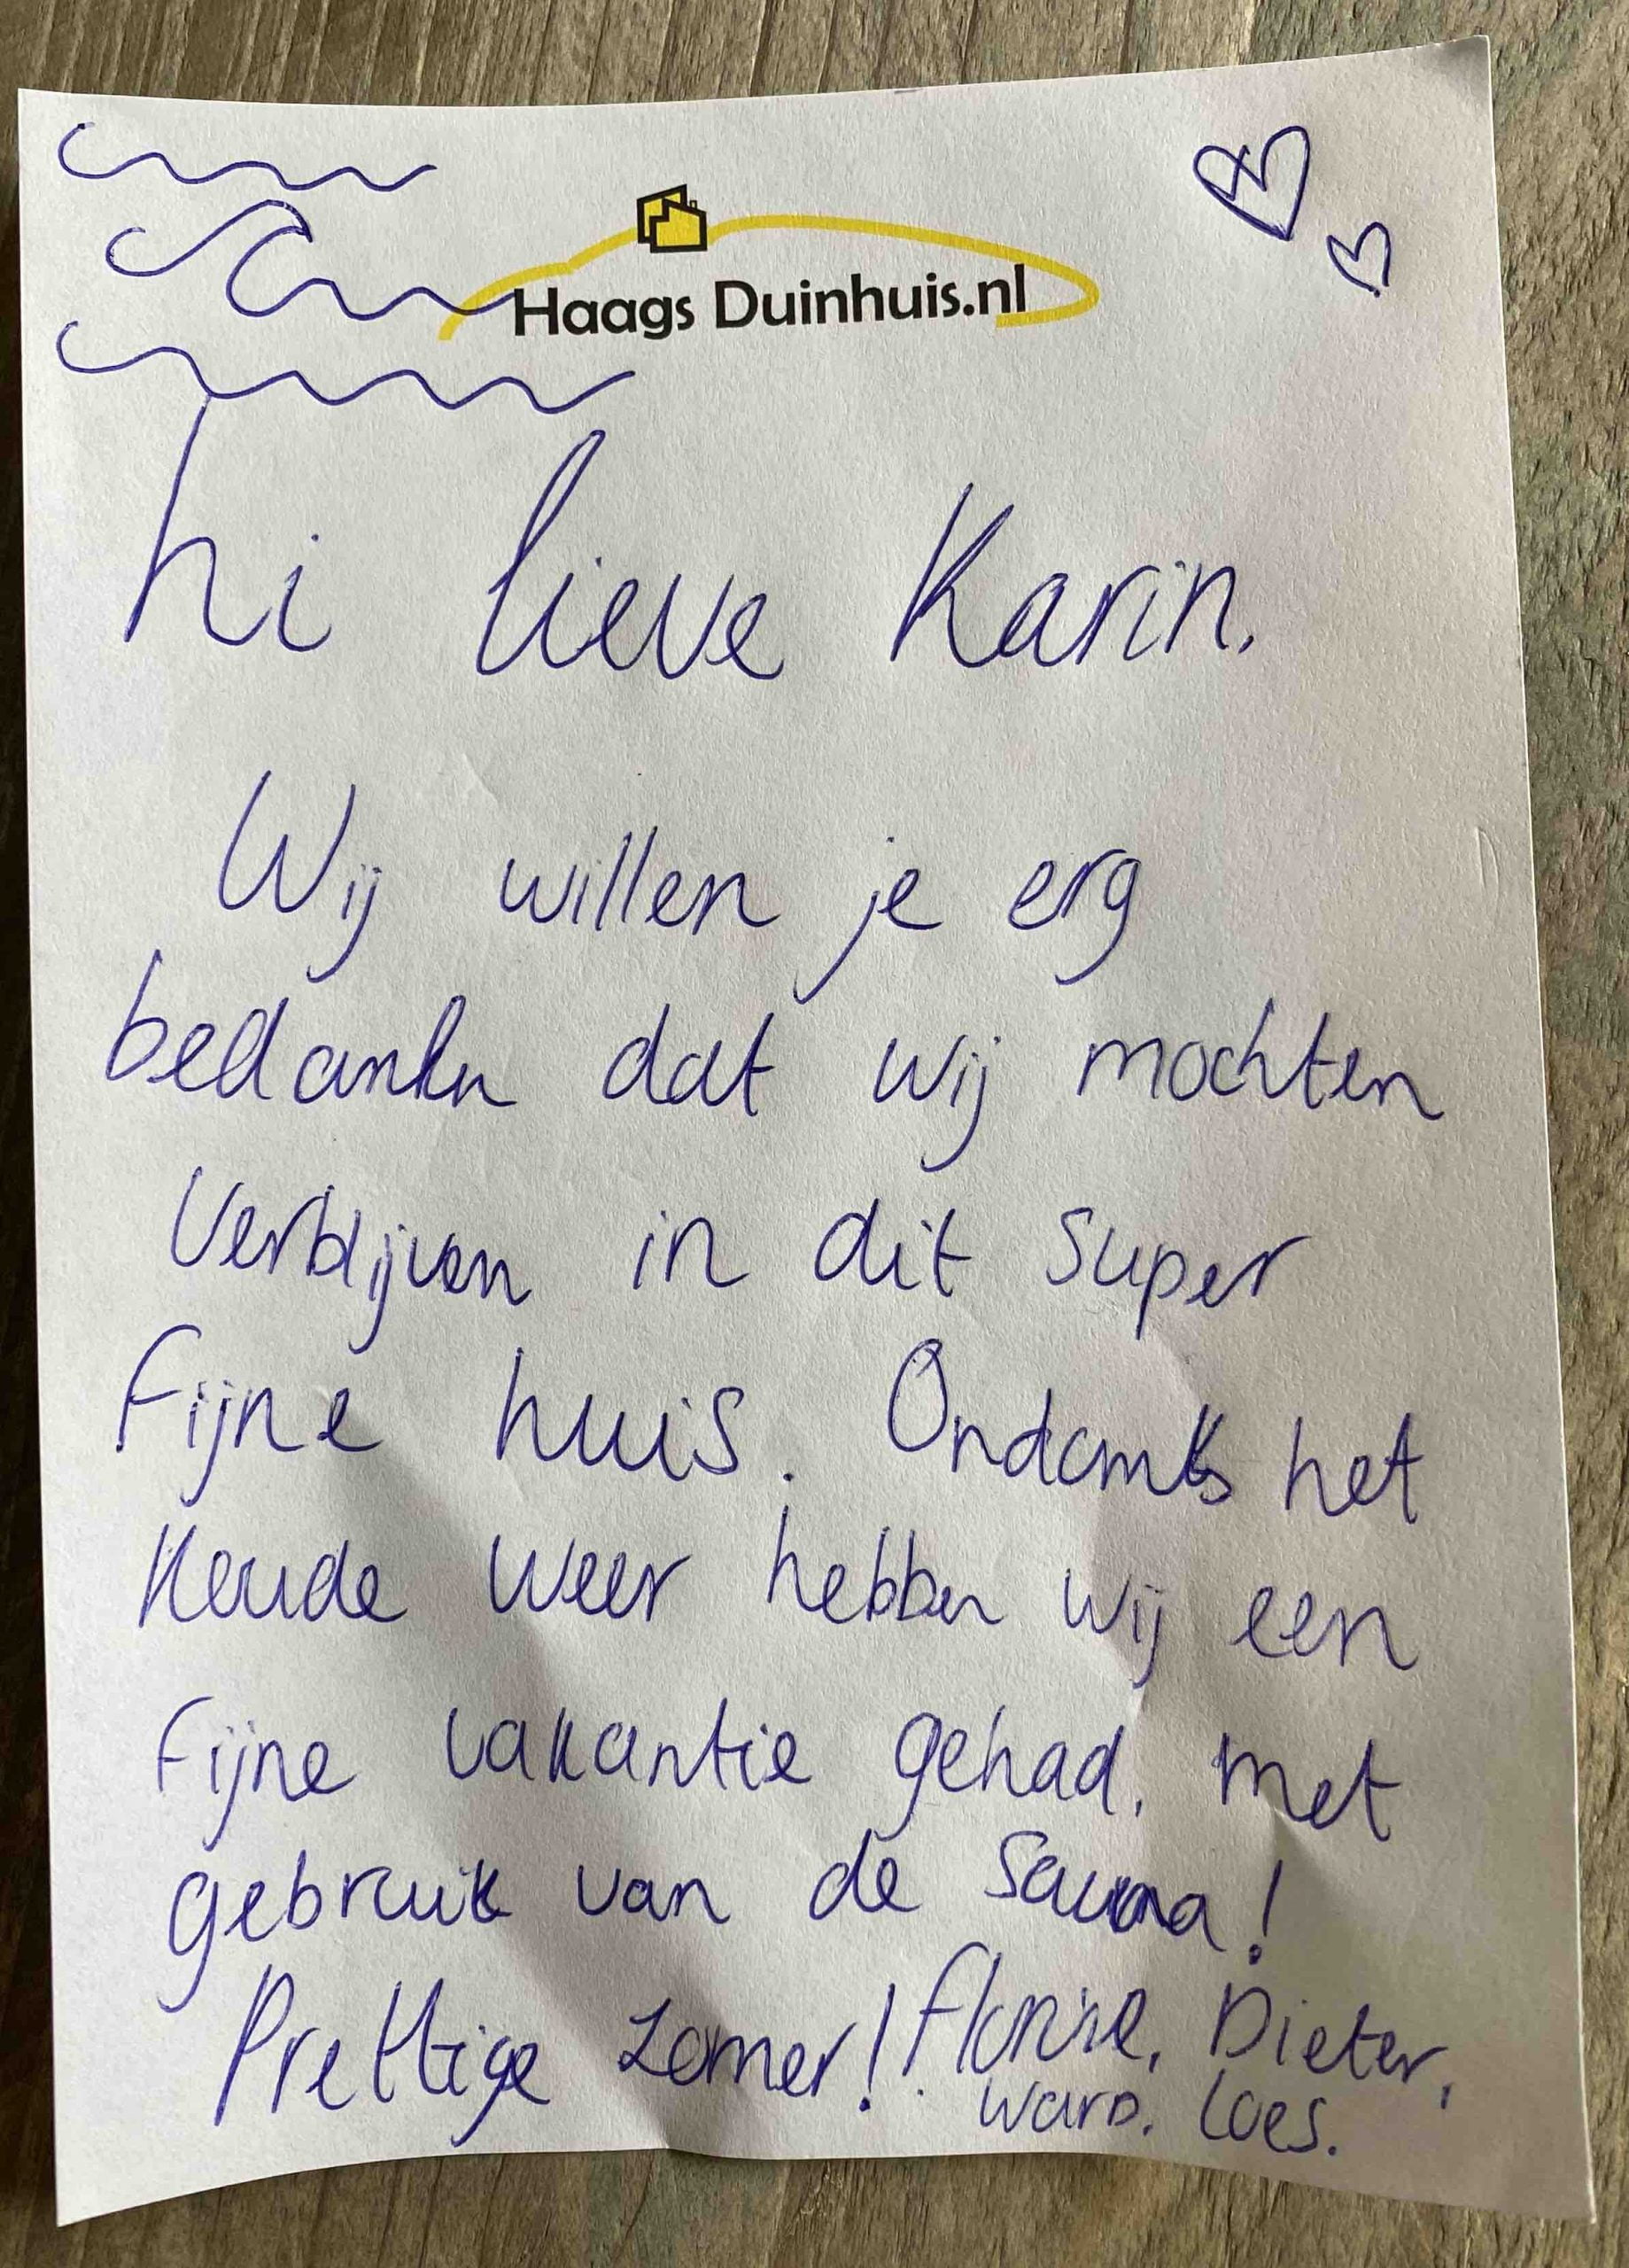 Haags Duinhuis.nl
hi lieve Karin.
Wij willen je erg
bedanken dat wij mochten
verblijven in dit super
fijne huis. Ondanks het
koude weer hebben wij een
fijne vakantie gehad, met
gebruik van de sauna!
Prettige zomer! Florise, Dieter,
Ward. Loes.